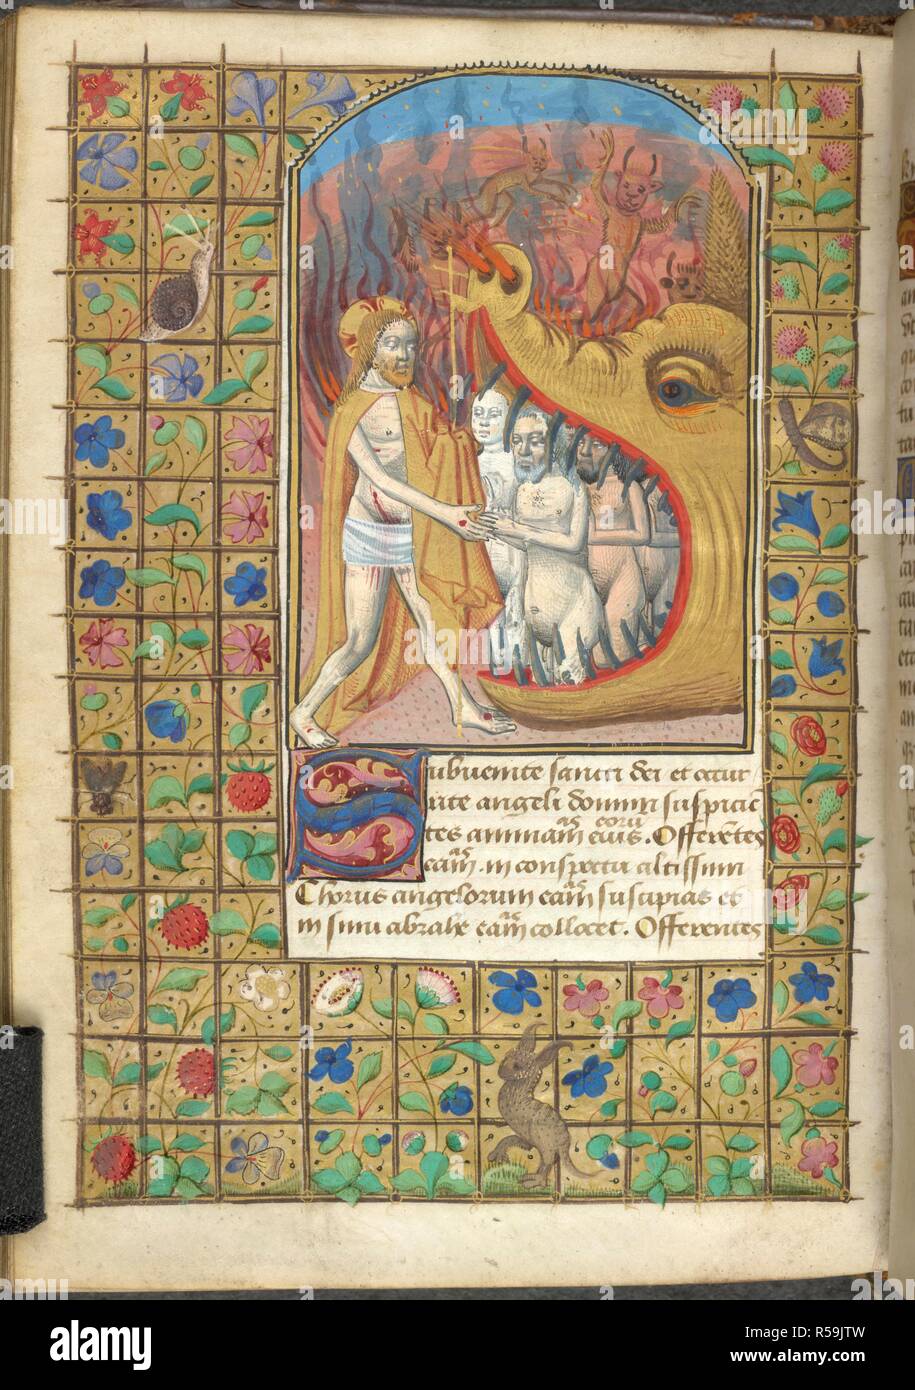 Subvenite sancti dei et occur
rite angeli domini suspicien
as eorum
tes animam eius. Offerentes
as
eam. in conspectu altissimi
as
Chorus angelorum eam suscipias et
as
in sinu abrahe eam collocet. Offerentes
alamy
Image ID: R59JTW
www.alamy.com